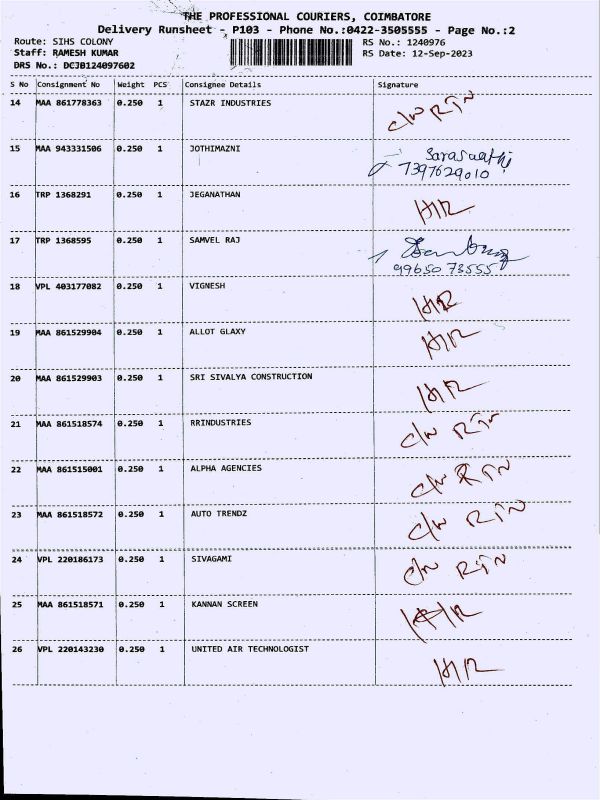 THE PROFESSIONAL COURIERS, COIMBATORE
Delivery Runsheet - P103 - Phone No.:0422-3505555 - Page No.:2
Route: SIHS COLONY
RS No.: 1240976
Staff: RAMESH KUMAR
RS Date: 12-Sep-2023
DRS No.: DCJB124097602
S No Consignment No Weight PCS Consignee Details Signature
14 MAA 861778363 0.250 1 STAZR INDUSTRIES C/N RTN
15 MAA 943331506 0.250 1 JOTHIMAZNI Saraswathi
7397629010
16 TRP 1368291 0.250 1 JEGANATHAN H/R
17 TRP 1368595 0.250 1 SAMVEL RAJ
99650 73555
18 VPL 403177082 0.250 1 VIGNESH H/R
19 MAA 861529904 0.250 1 ALLOT GLAXY H/R
20 MAA 861529903 0.250 1 SRI SIVALYA CONSTRUCTION H/R
21 MAA 861518574 0.250 1 RRINDUSTRIES C/N RTN
22 MAA 861515001 0.250 1 ALPHA AGENCIES C/N RTN
23 MAA 861518572 0.250 1 AUTO TRENDZ C/N RTN
24 VPL 220186173 0.250 1 SIVAGAMI C/N RTN
25 MAA 861518571 0.250 1 KANNAN SCREEN H/R
26 VPL 220143230 0.250 1 UNITED AIR TECHNOLOGIST H/R